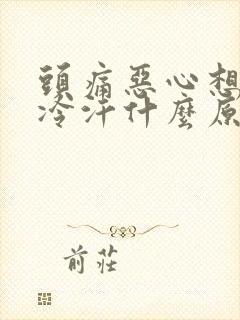 頭痛惡心想
冷汗什麼原
前莊